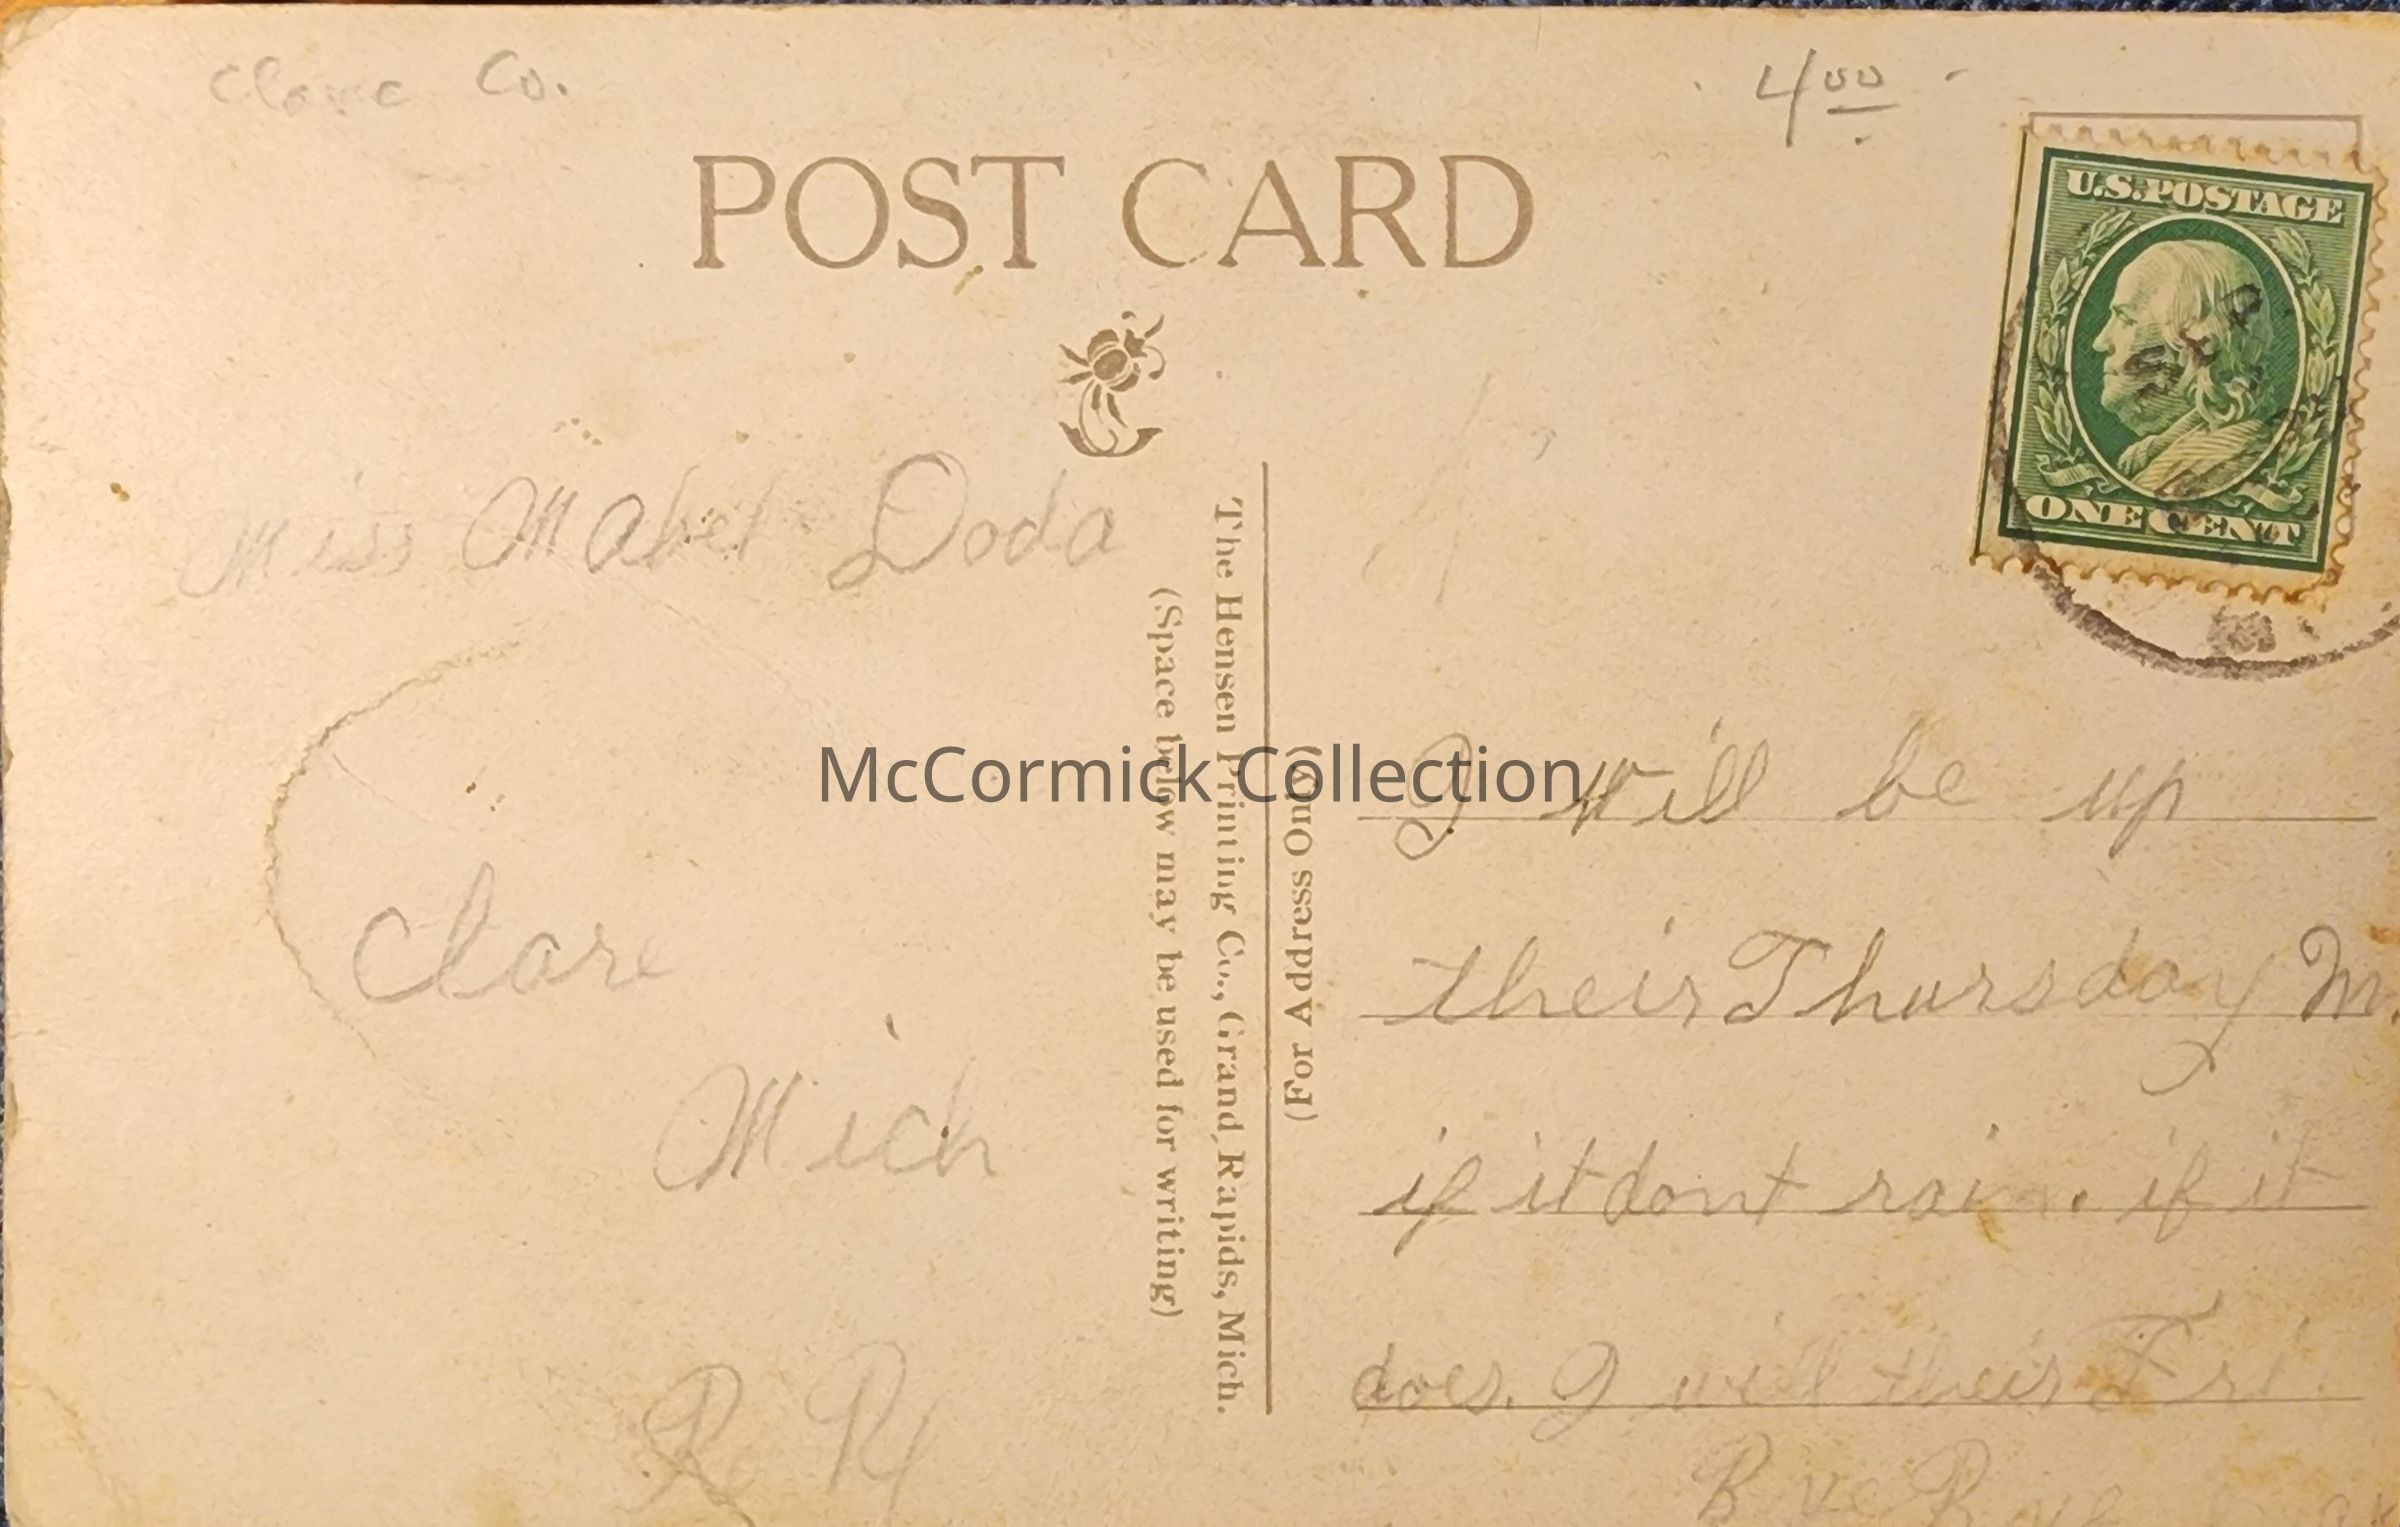 Clare Co.
4 00
POST CARD
U.S. POSTAGE
ONE CENT
Miss Mabel Doda
Clare
Mich
R R
The Hensen Printing Co., Grand Rapids, Mich.
(Space below may be used for writing)
(For Address Only)
McCormick Collection
I will be up
their Thursday M.
if it dont rain. if it
does. I will their Fri.
Bye Bye